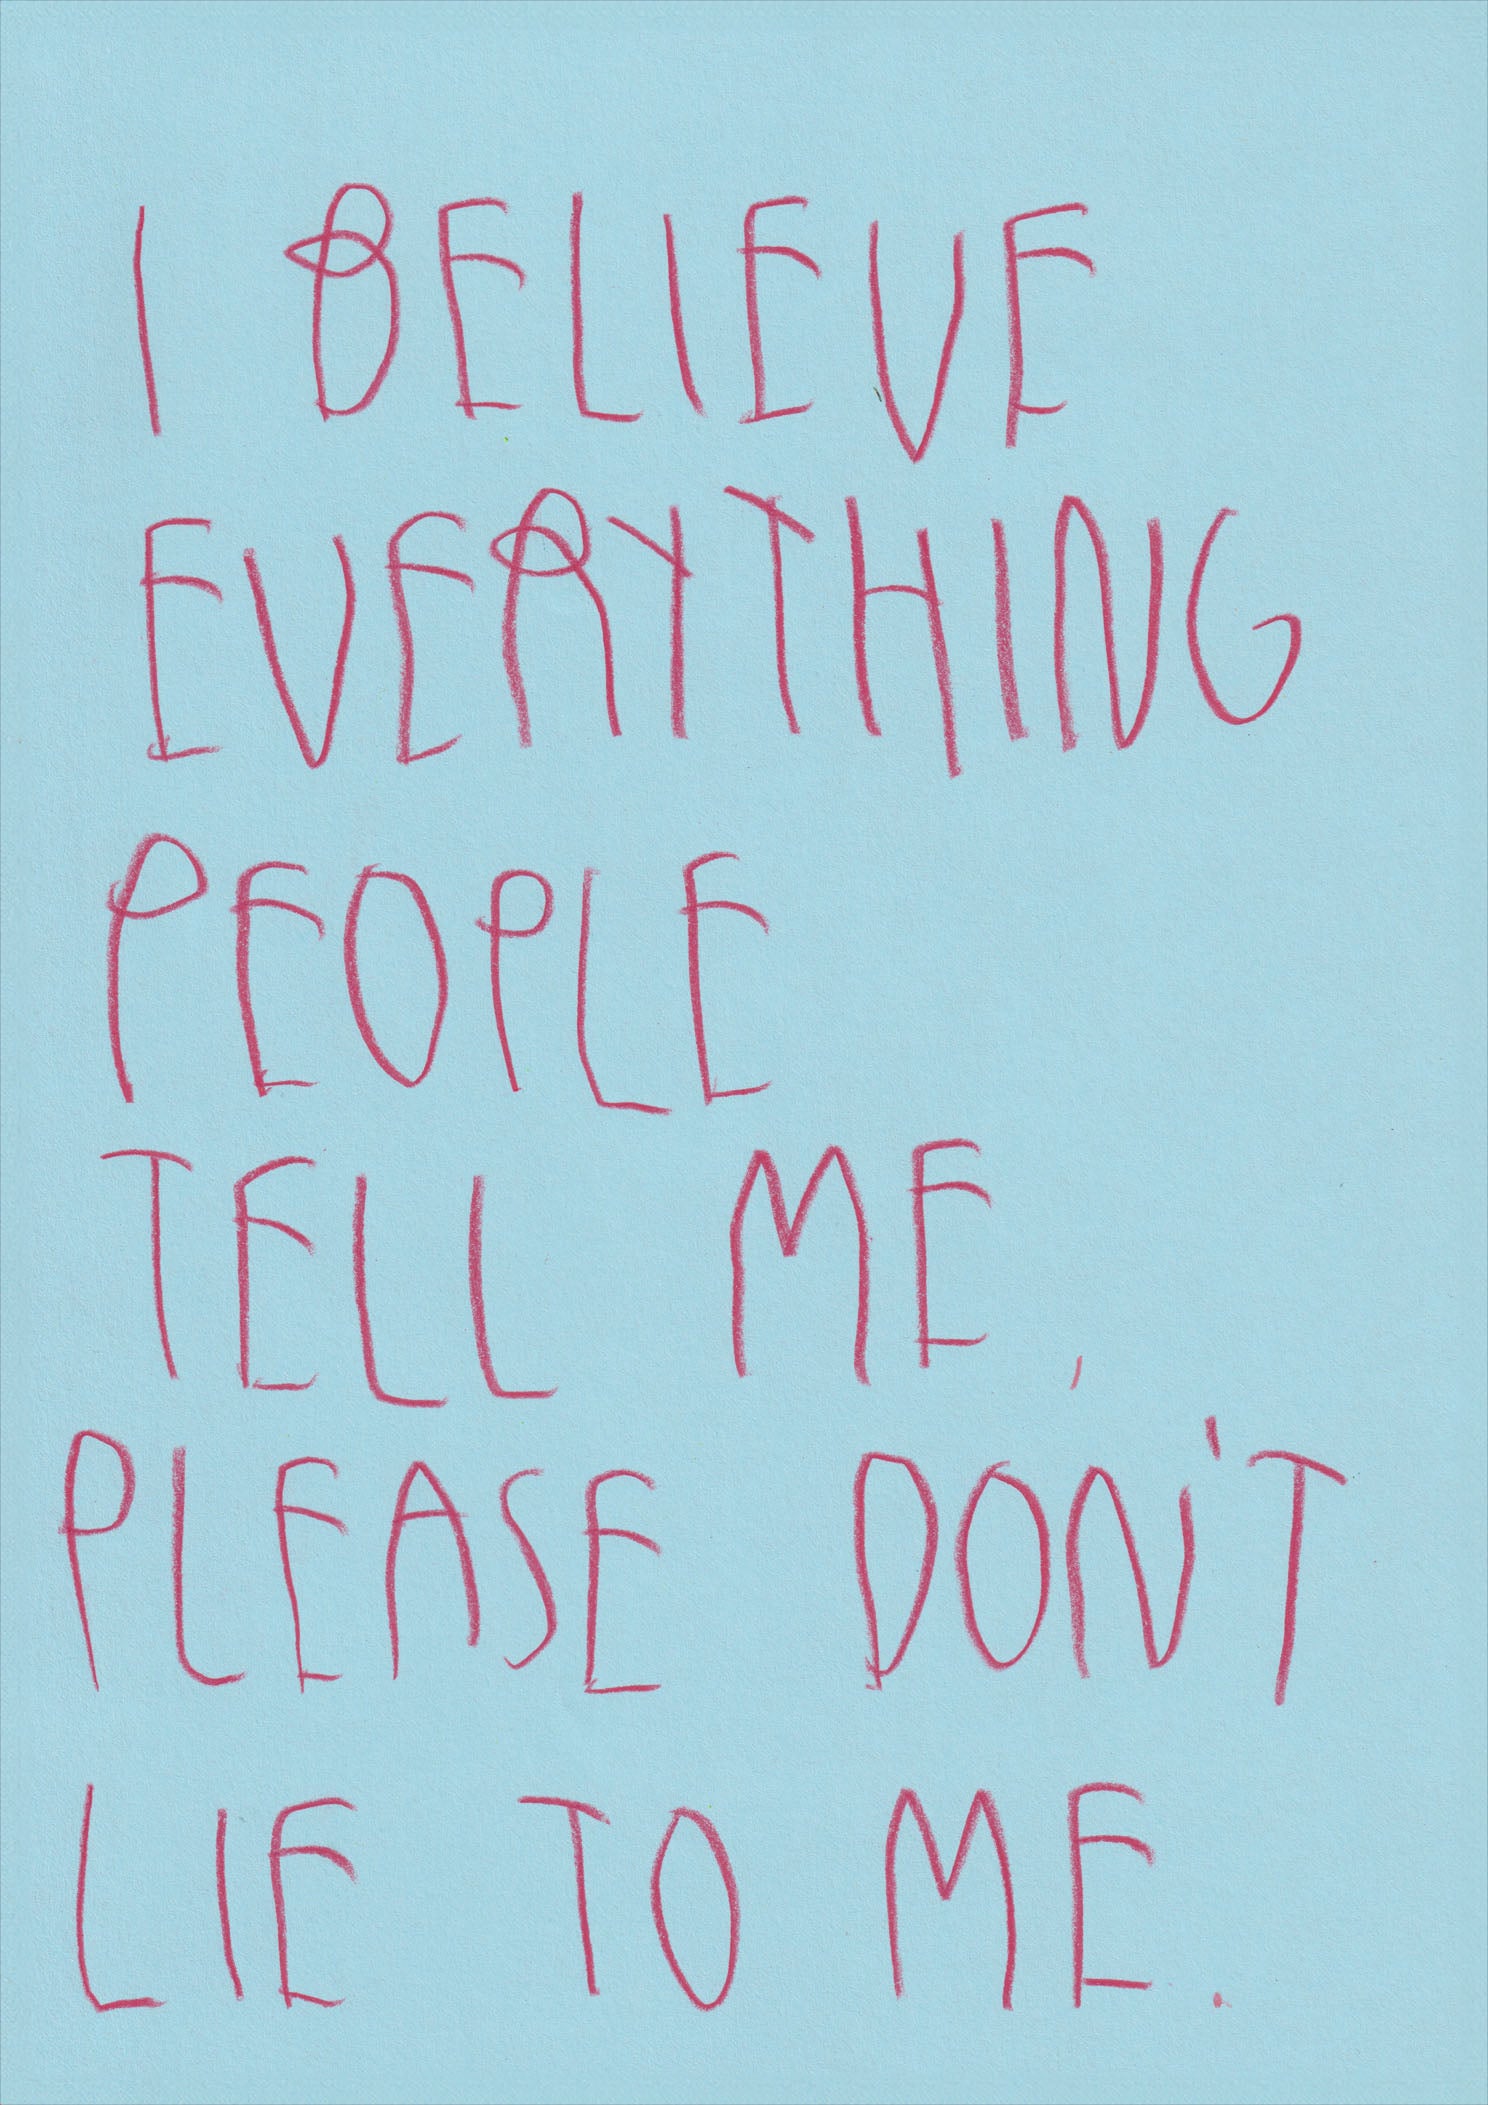 I BELIEVE
EVERYTHING
PEOPLE
TELL ME,
PLEASE DON'T
LIE TO ME.